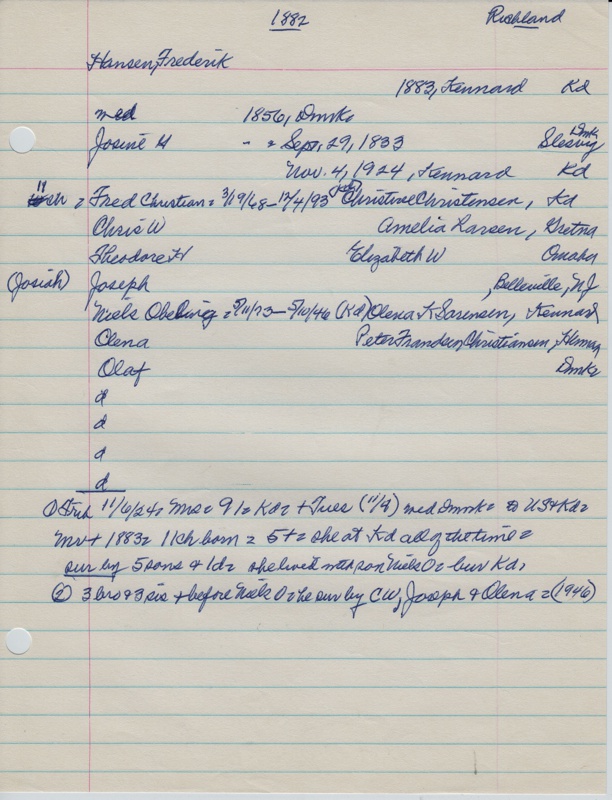 1882 Richland
Hansen, Frederik
1883, Kennard Kd
med 1856, Dmrk
Josine H " = Sept, 29, 1833 Slesvig Dmk
Nov. 4, 1924, Kennard Kd
11 ch = Fred Christian = 3/19/68 - 12/4/93 Christine Christensen, Kd
Chris W Amelia Larsen, Gretna
Theodore H Elizabeth W Omaha
(Josiah) Joseph , Belleville, NJ
Niels = 5/11/73 - 5/10/46 (Kd) Olena K Sorensen, Kennard
Olena Peter Frandsen Christiansen, Herman
Olaf Dmk
d
d
d
d
① 11/6/24 = Mrs = 91 = Kd = + Tues (11/4) med Dmrk = US + Kd =
Mv + 1883 = 11 ch born = 5 + = she at Kd all of the time =
sur by 5 sons + 1 d = she lived with son Niels O = bur Kd,
② 3 bro + 3 sis + before Niels O = he sur by CW, Joseph + Olena = (1946)